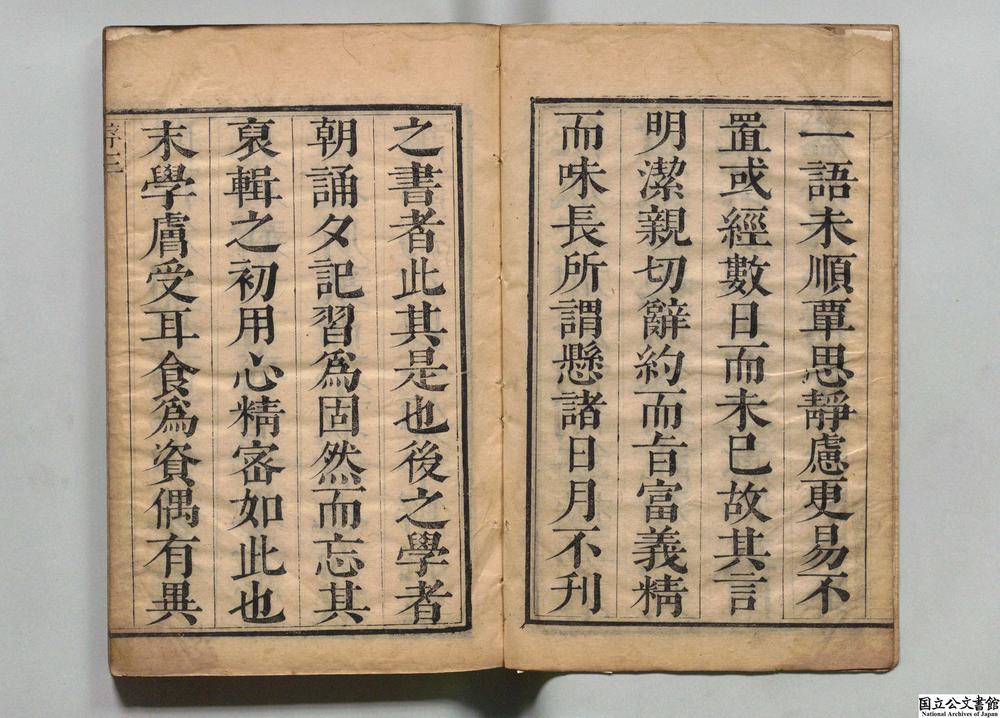 一語未順覃思靜慮更易不
置或經數日而未已故其言
明潔親切辭約而旨富義精
而味長所謂懸諸日月不刋
之書者此其是也後之學者
朝誦夕記習爲固然而忘其
裒輯之初用心精密如此也
末學膚受耳食爲資偶有異
序三
国立公文書館
National Archives of Japan